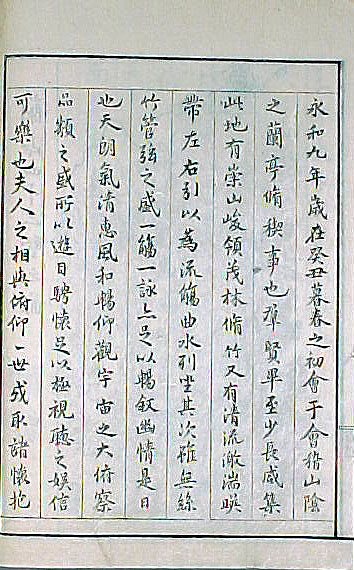 永和九年歲在癸丑暮春之初會于會稽山陰
之蘭亭脩稧事也羣賢畢至少長咸集
此地有崇山峻領茂林脩竹又有清流激湍暎
帶左右引以為流觴曲水列坐其次雖無絲
竹管弦之盛一觴一詠亦足以暢敘幽情是日
也天朗氣清惠風和暢仰觀宇宙之大俯察
品類之盛所以遊目騁懷足以極視聽之娛信
可樂也夫人之相與俯仰一世或取諸懷抱